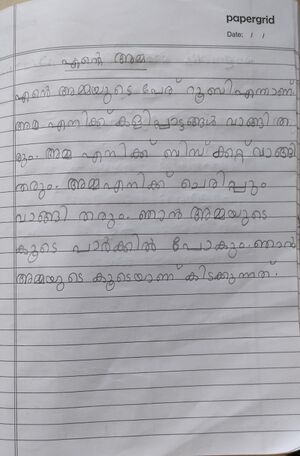 papergrid
Date: / /
എന്റെ അമ്മ
എന്റെ അമ്മയുടെ പേര് റൂബിഎന്നാണ്.
അമ്മ എനിക്ക് കളിപ്പാട്ടങ്ങൾ വാങ്ങി ത
രും. അമ്മ എനിക്ക് ബിസ്ക്കറ്റ് വാങ്ങി
തരും. അമ്മഎനിക്ക് ചെരിപ്പും
വാങ്ങി തരും. ഞാൻ അമ്മയുടെ
കൂടെ പാർക്കിൽ പോകും. ഞാൻ
അമ്മയുടെ കൂടെയാണ് കിടക്കുന്നത്.